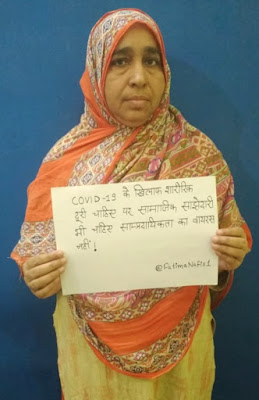 COVID-19 के खिलाफ शारीरिक
दूरी चाहिए पर सामाजिक साझेदारी
भी चाहिए साम्प्रदायिकता का वायरस
नहीं!